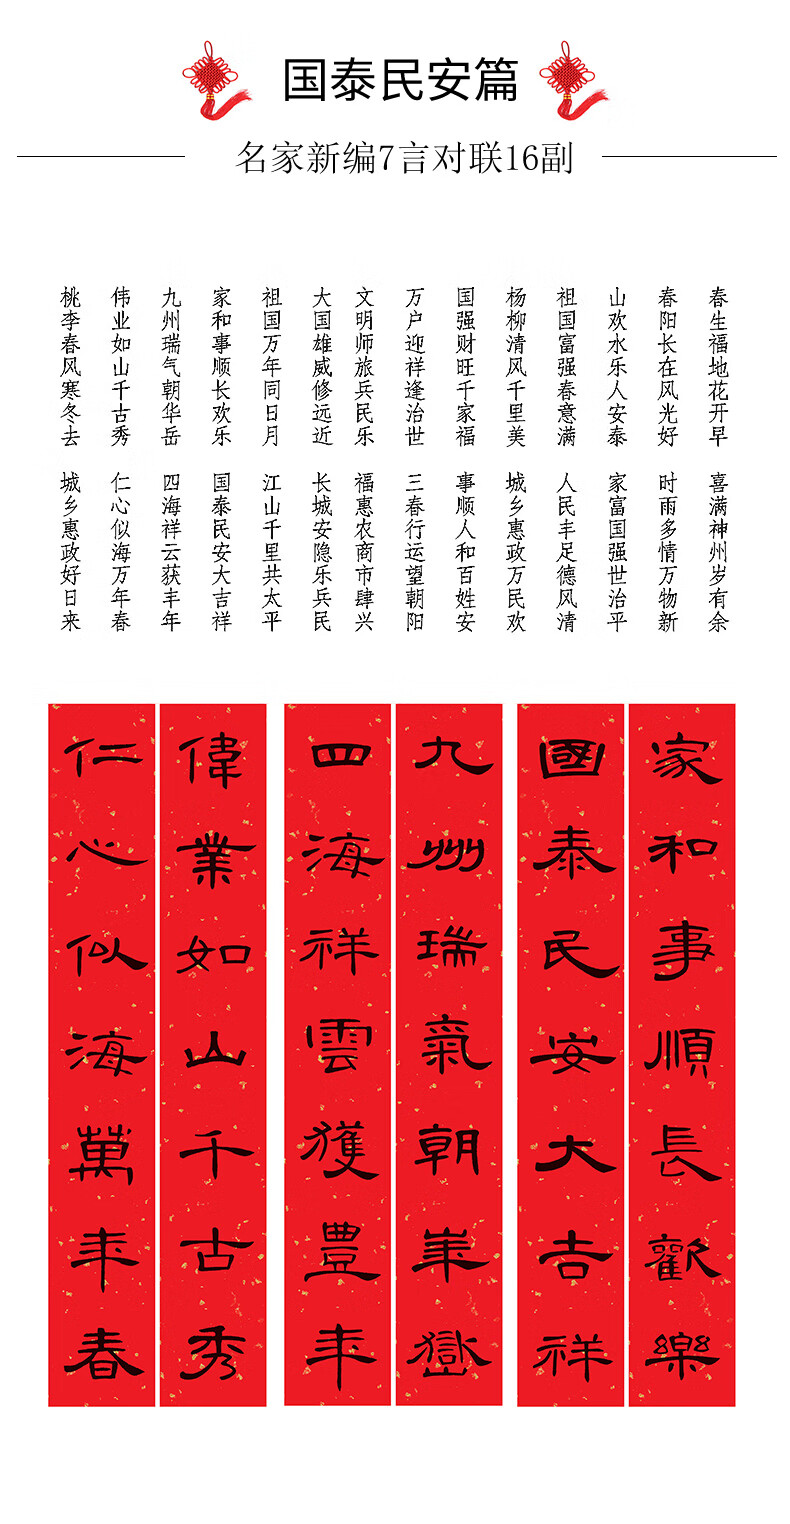 国泰民安篇
名家新编7言对联16副
春生福地花开早
喜满神州岁有余
春阳长在风光好
时雨多情万物新
山欢水乐人安泰
家富国强世治平
祖国富强春意满
人民丰足德风清
杨柳清风千里美
城乡惠政万民欢
国强财旺千家福
事顺人和百姓安
万户迎祥逢治世
三春行运望朝阳
文明师旅兵民乐
福惠农商市肆兴
大国雄威修远近
长城安隐乐兵民
祖国万年同日月
江山千里共太平
家和事顺长欢乐
国泰民安大吉祥
九州瑞气朝华岳
四海祥云获丰年
伟业如山千古秀
仁心似海万年春
桃李春风寒冬去
城乡惠政好日来
家和事順長歡樂
國泰民安大吉祥
九州瑞氣朝崋嶽
四海祥雲獲豊年
偉業如山千古秀
仁心似海萬年春